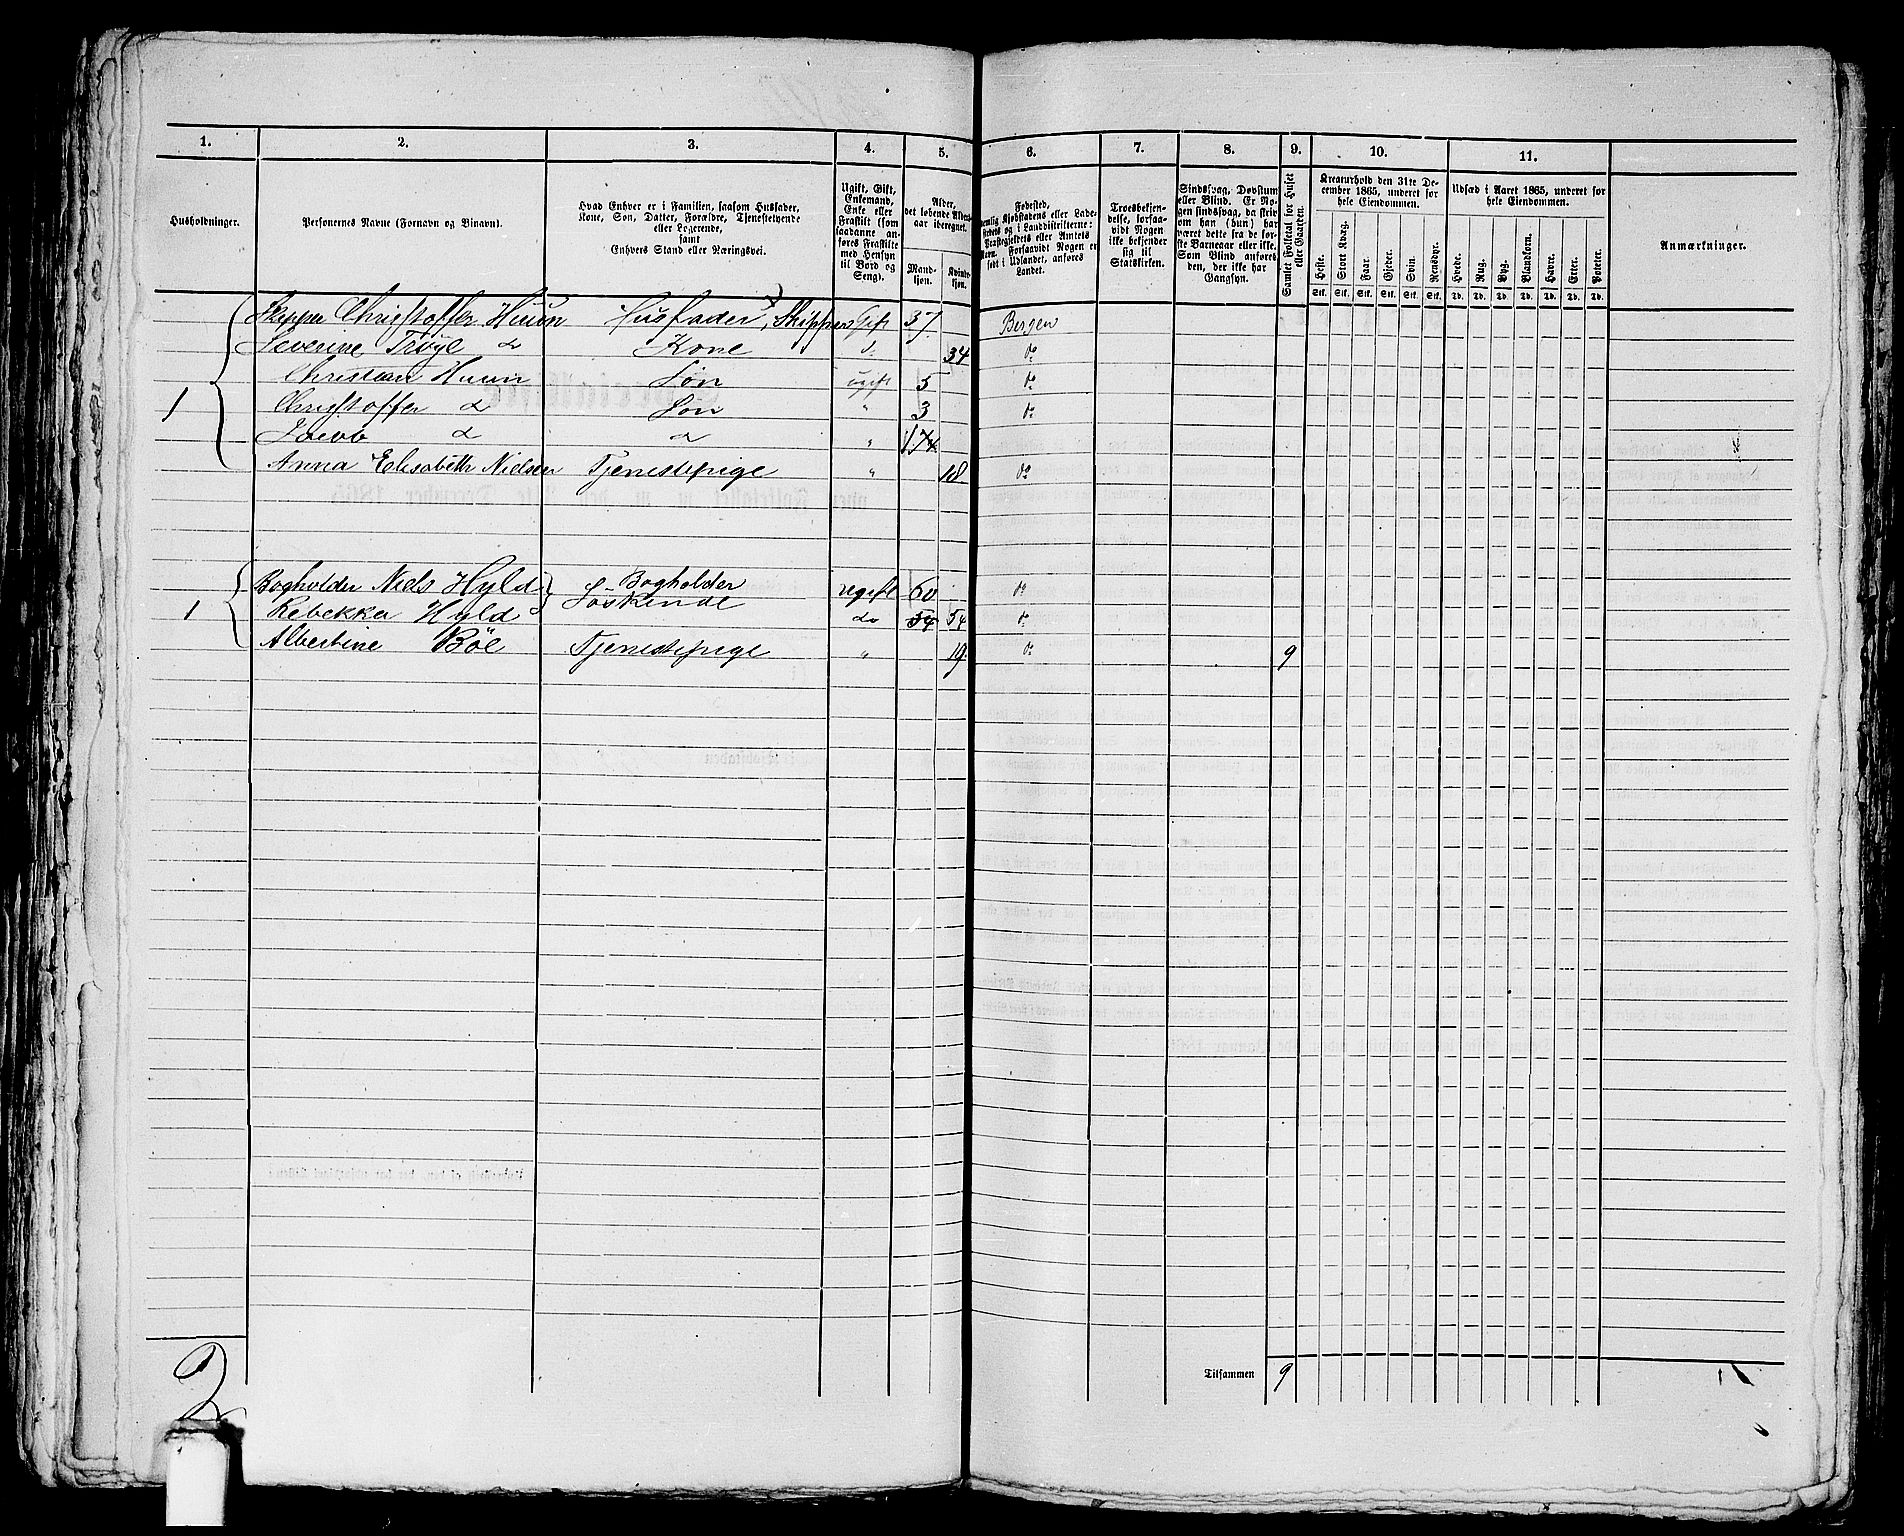 1. 2. 3. 4. 5. 6. 7. 8. 9. 10. 11.
Husholdninger.
Personernes Navne (Fornavn og Binavn).
Hvad Enhver er i Familien, saasom Husfader,
Kone, Søn, Datter, Forældre, Tjenestetyende
eller Logerende,
samt
Enhvers Stand eller Næringsvei.
Ugift, Gift,
Enkemand,
Enke eller
Fraskilt (som
saadanne an-
føres Fraskilte
med Hensyn
til Bord og
Seng).
Alder,
det løbende Alders-
aar iberegnet.
Mand-
kjøn.
Kvinde-
kjøn.
Fødested,
nemlig Kjøbstadens eller Lade-
stedets og i Landdistrikterne:
Præstegjeldets eller Amtets
Navn. Forsaavidt Nogen er
født i Udlandet, anføres
Landet.
Troesbekjen-
delse, forsaa-
vidt Nogen
ikke bekjender
sig til
Statskirken.
Sindssvag, Døvstum
eller Blind. Er No-
gen sindssvag, da skriv
om han (hun) har
været dette fra de før-
ste Barneaar eller ikke.
Som Blind anføres
den, der ikke har
Gangsyn.
Samlet Folketal for Huset
eller Gaarden.
Kreaturhold den 31te De-
cember 1865, underet for
hele Eiendommen.
Heste. Stort Kvæg. Faar. Gjeder. Svin. Rensdyr.
Stk. Stk. Stk. Stk. Stk. Stk.
Udsæd i Aaret 1865, underet for
hele Eiendommen.
Hvede. Rug. Byg. Blandkorn. Havre. Erter. Poteter.
Td. Td. Td. Td. Td. Td. Td.
Anmærkninger.
Skipper Christoffer Huun Husfader, Skipper Gift 37 Bergen
Severine Trøye do Kone do 34 do
Christian Huun Søn ugift 5 do
1 Christoffer do Søn " 3 do
Jacob do do "
Anna Elisabeth Nielsen Tjenestepige " 18 do
Bogholder Niels Hyld Bogholder ugift 60 do
1 Rebekka Hyld Søskende do 54 54 do
Albertine Bøe Tjenestepige " 19 do 9
Tilsammen 9
2